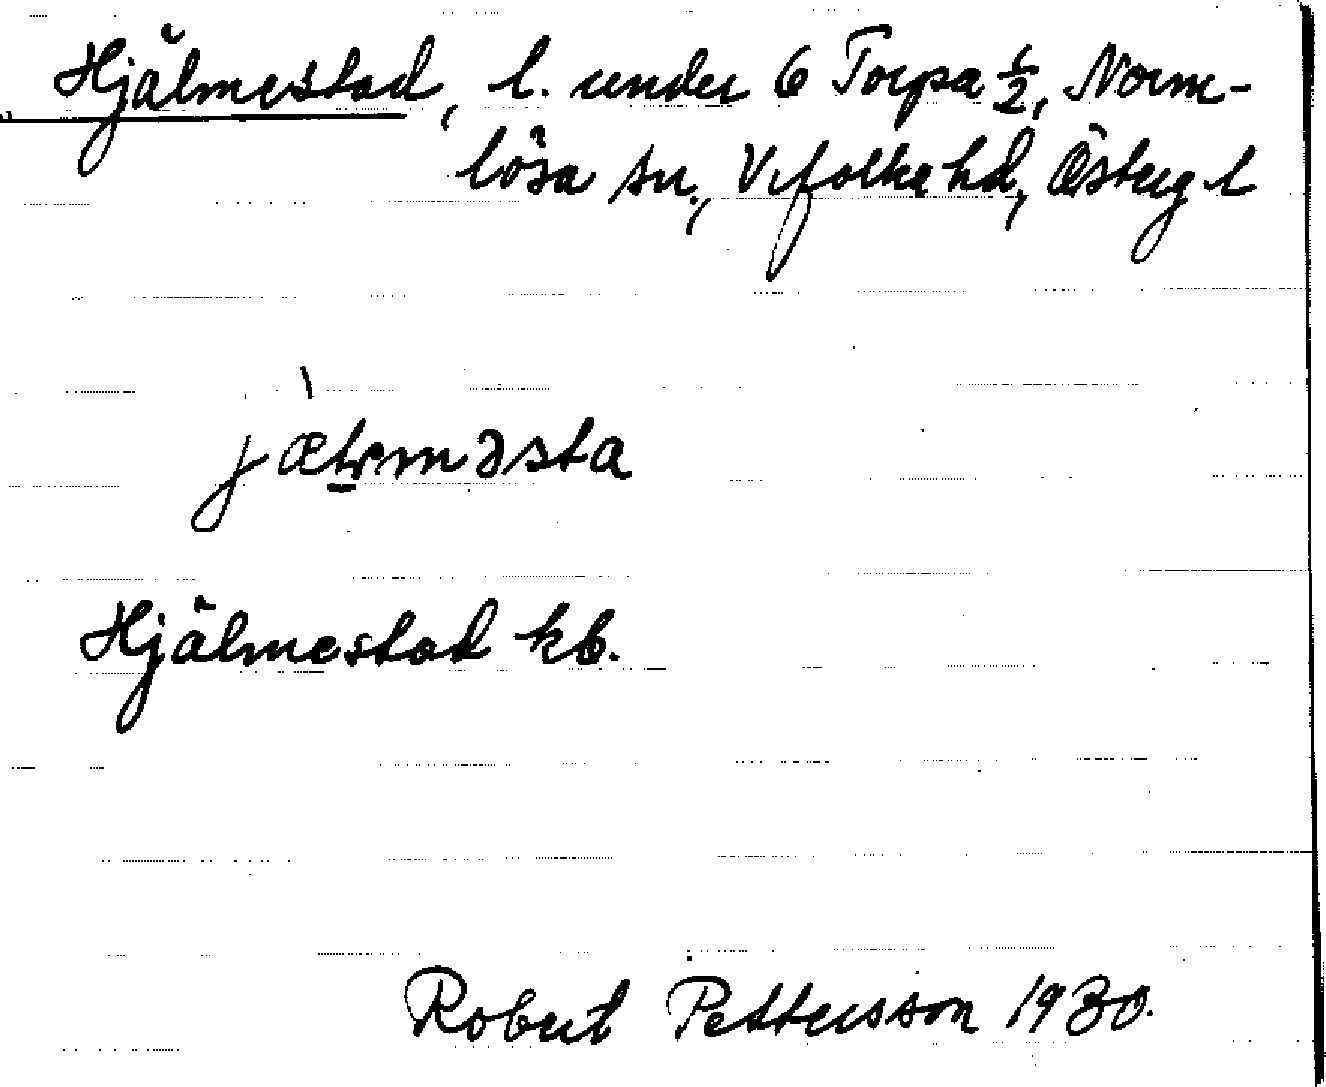 Hjälmestad, l. under 6 Torpa ½, Norm-
lösa sn., Vifolka hd, Österg l
Hjälmestad kb.
Robert Pettersson 1930.